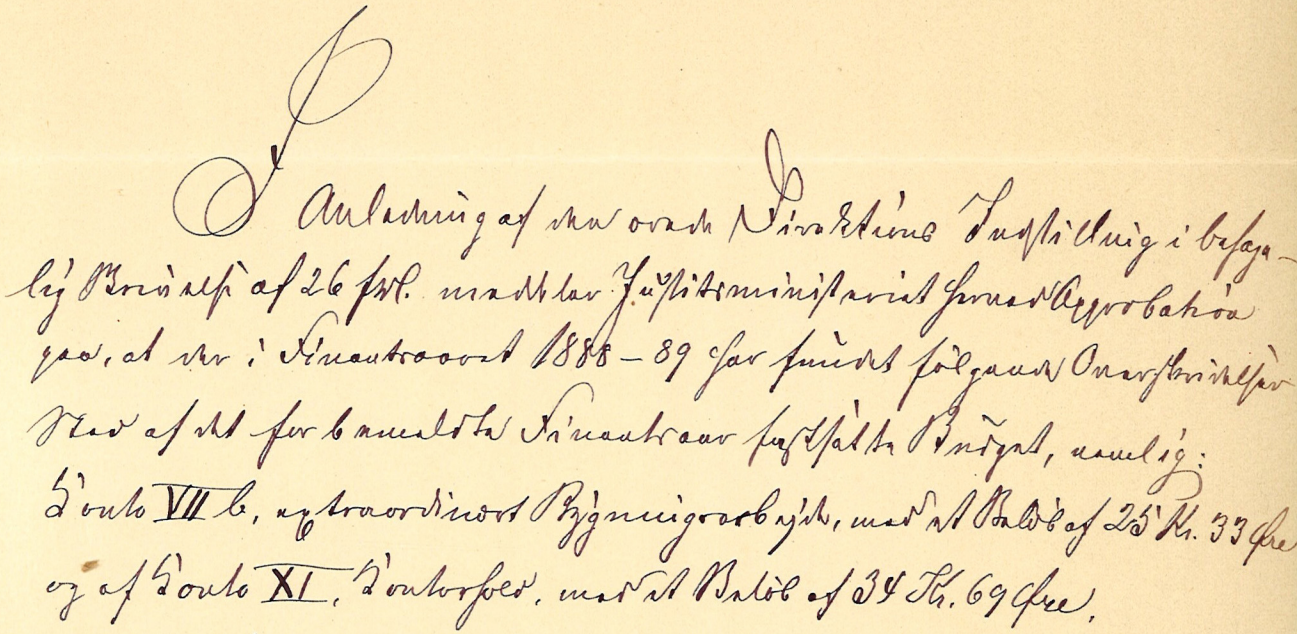 I Anledning af den ærede Direktions Indstilling i behage-
lig Skrivelse af 26 f.M. meddeler Justitsministeriet herved Approbation
paa, at der i Finantsaaret 1888-89 har fundet følgende Overskridelser
Sted af det for bemeldte Finantsaar fastsatte Budget, nemlig:
Conto VII b, extraordinært Bygningsarbejde, med et Beløb af 25 Kr. 33 Øre
og af Conto XI, Contorhold, med et Beløb af 34 Kr. 69 Øre.